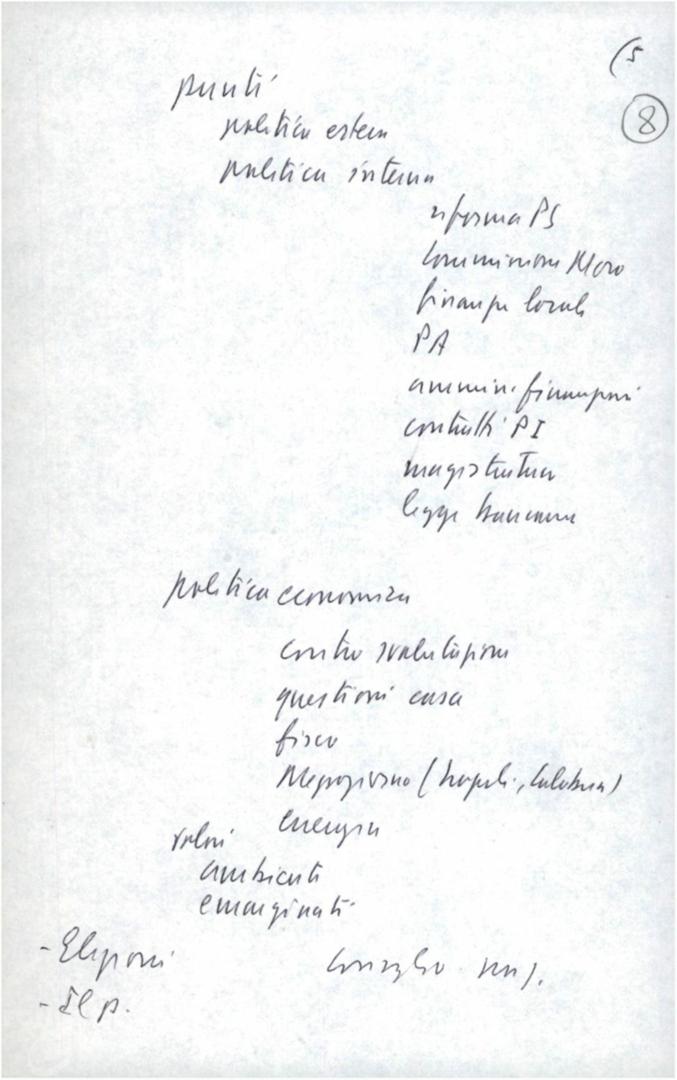 (5
8
punti
politica estera
politica interna
riforma PS
Commissione Moro
finanza locale
PA
ammin. finanziari
contratti PI
magistratura
legge
politica economica
contro svalutazione
questioni casa
fisco
Mezzogiorno (Napoli, Calabria)
energia
valori
ambienti
emarginati
- Elezioni
Consiglio
- Il p.